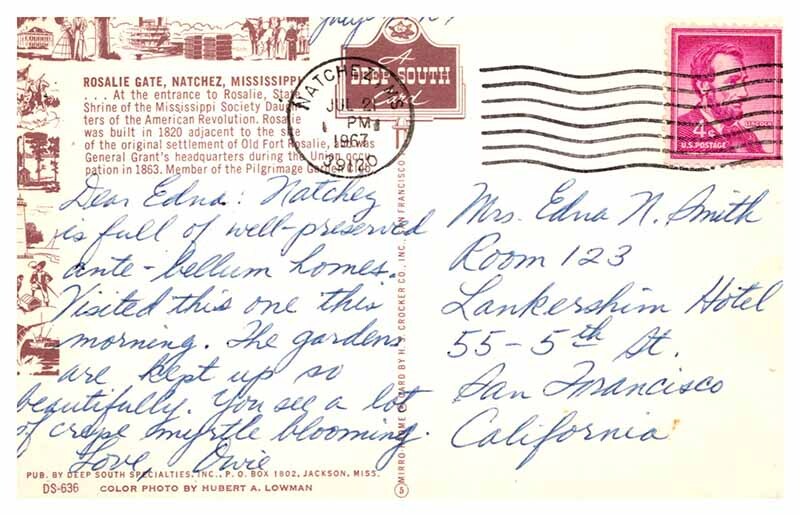 A
DEEP SOUTH
Card
ROSALIE GATE, NATCHEZ, MISSISSIPPI
. . . At the entrance to Rosalie, State
Shrine of the Mississippi Society Daugh-
ters of the American Revolution. Rosalie
was built in 1820 adjacent to the site
of the original settlement of Old Fort Rosalie, and was
General Grant's headquarters during the Union occu-
pation in 1863. Member of the Pilgrimage Garden Club.
NATCHEZ, MS
JUL 21
PM
1967
39120
LINCOLN
4¢
U.S. POSTAGE
Dear Edna: Natchez
is full of well-preserved
ante-bellum homes.
Visited this one this
morning. The gardens
are kept up so
beautifully. You see a lot
of crepe myrtle blooming.
Love Owie
Mrs. Edna N. Smith
Room 123
Lankershim Hotel
55 - 5th St.
San Francisco
California
MIRRO-KROME CARD BY H. S. CROCKER CO., INC., SAN FRANCISCO
PUB. BY DEEP SOUTH SPECIALTIES, INC., P. O. BOX 1802, JACKSON, MISS.
DS-636 COLOR PHOTO BY HUBERT A. LOWMAN
5